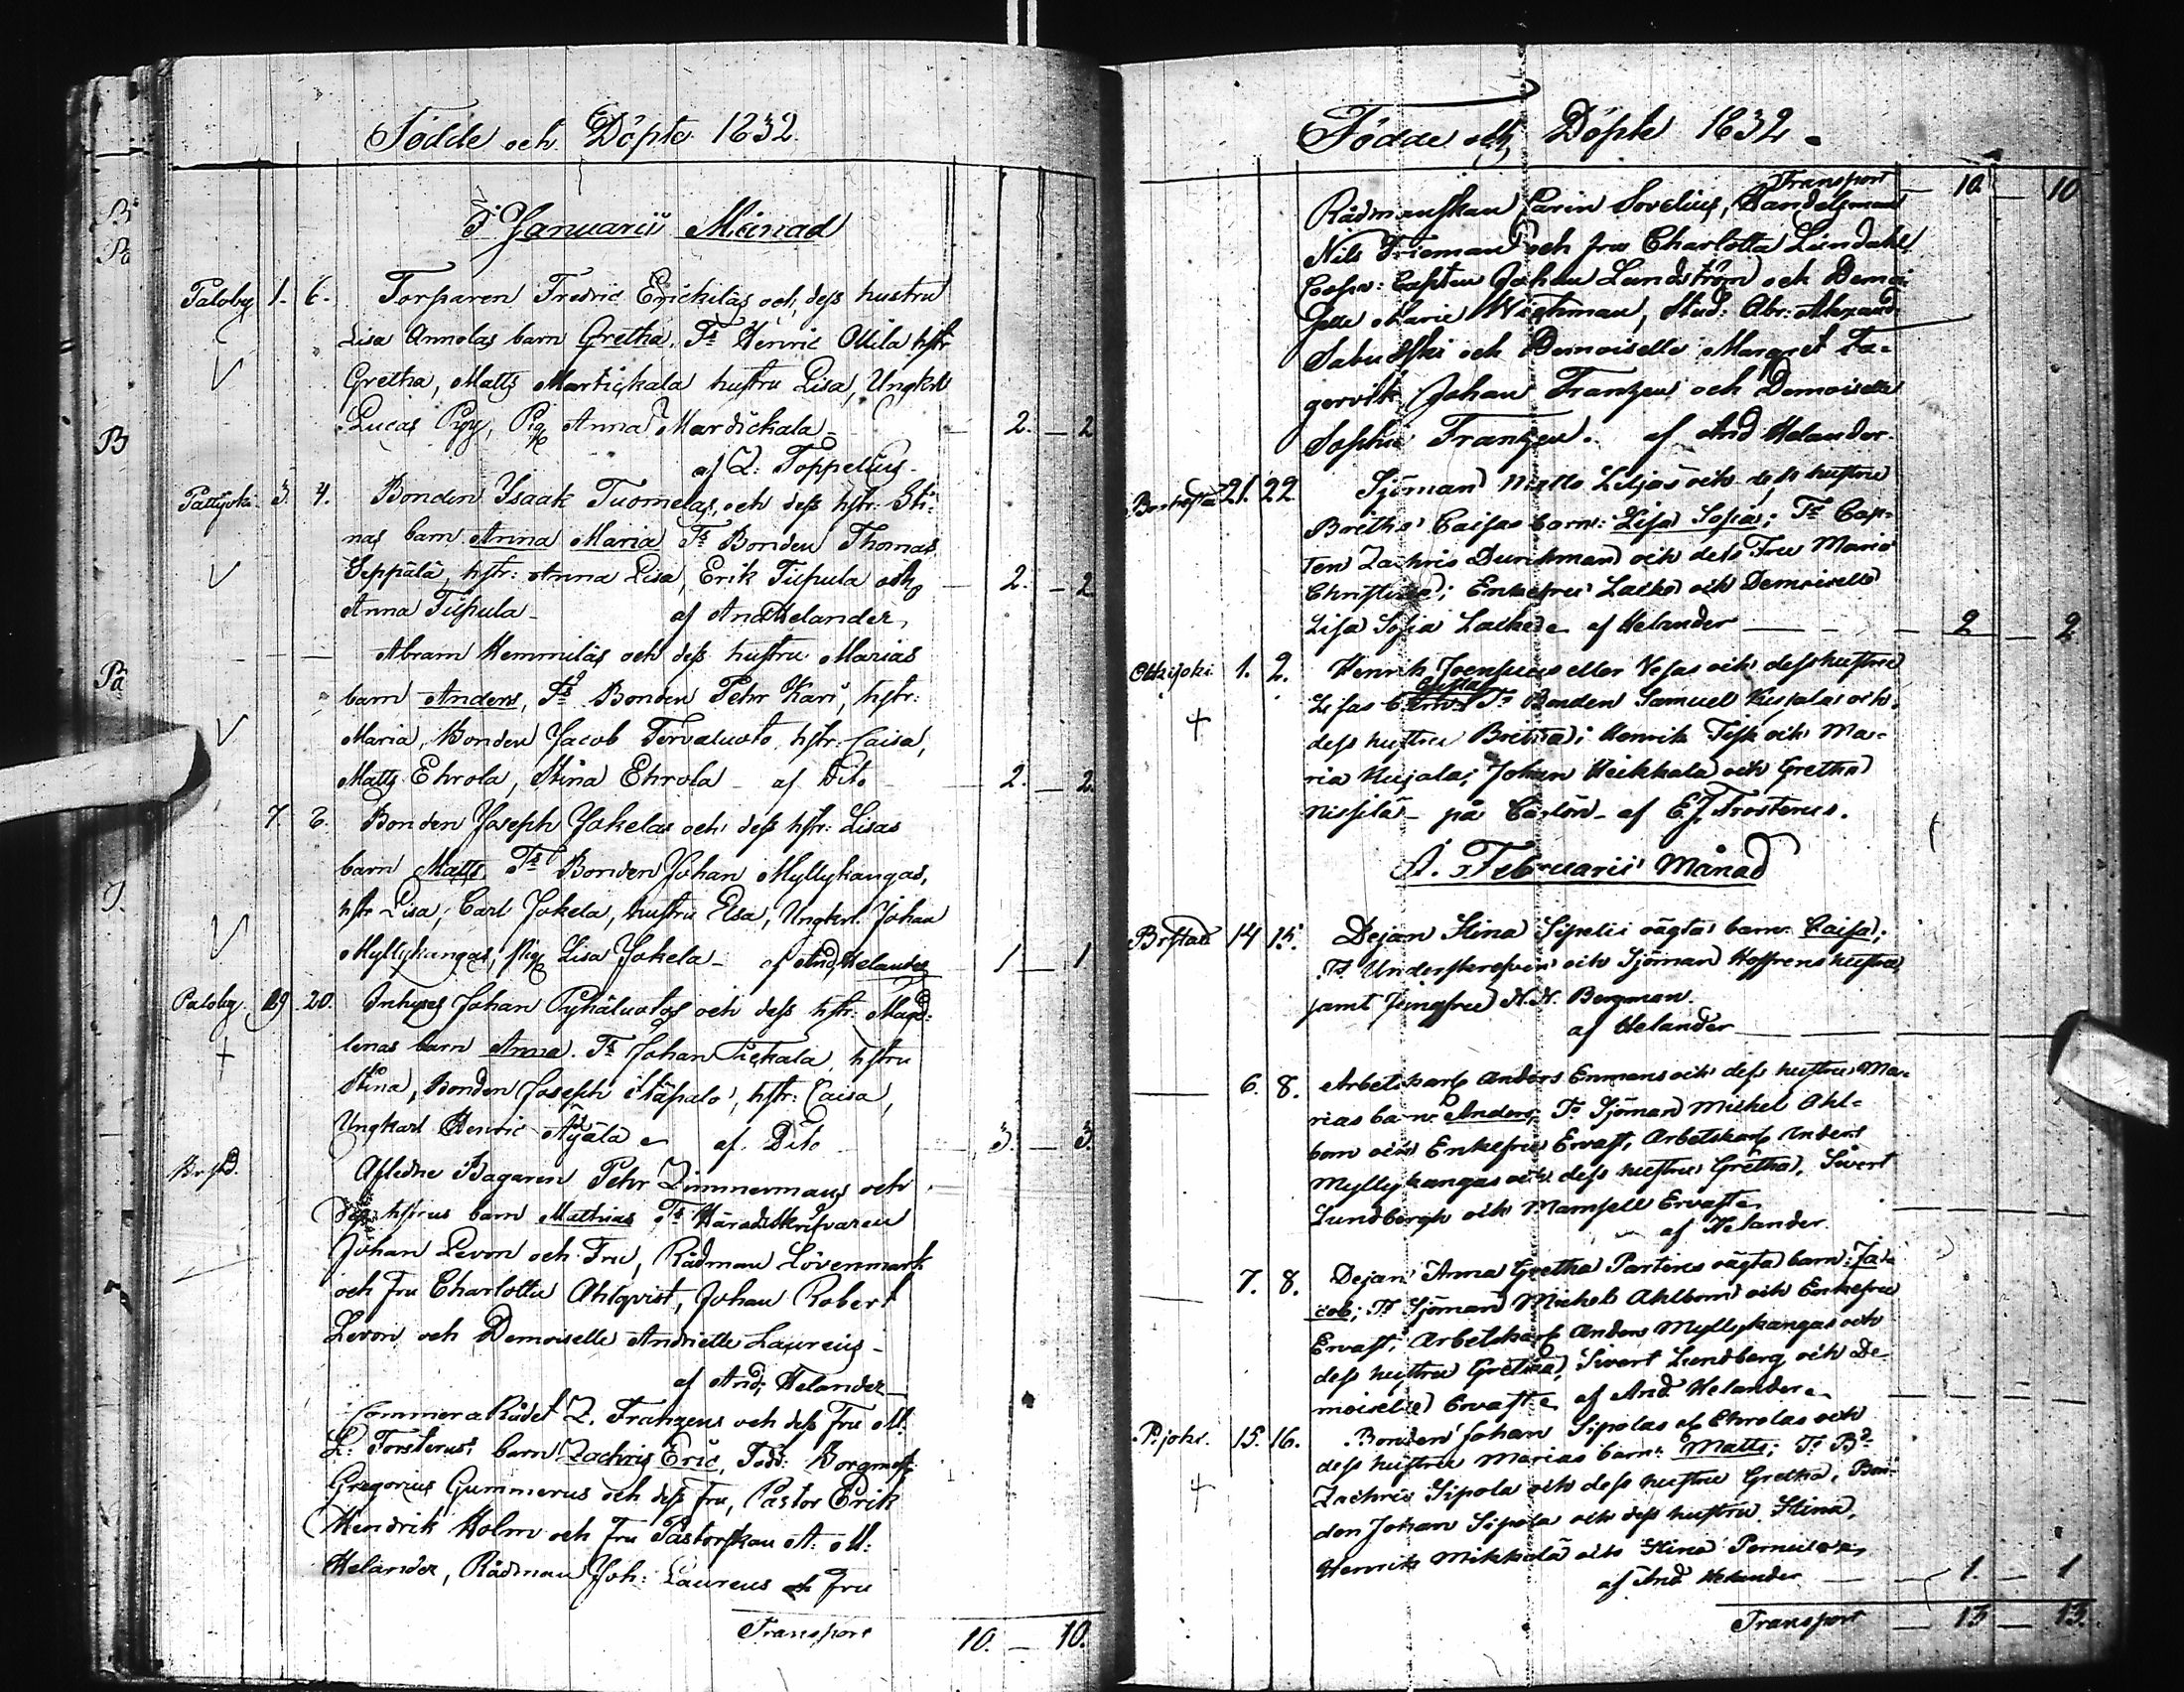 Födde och Döpte 1832.
I Januarii Månad
Paloby 1. 6. Torparen Fredric Erickilas och dess hustru
Lisa Annolas barn Gretha. Ts Henric Ollila hstr
Gretha, Matts Martickala hustru Lisa, Ungkrl
Lucas Pyy, Pig Anna Mardickala — 2. — 2
af Z: Toppelius
Pattijoki 3. 4. Bonden Isaak Tuomelas, och dess hstr: Sti-
nas barn Anna Maria Ts Bonden Thomas
Seppälä, hstr: Anna Lisa, Erik Tiipula och — 2. — 2
Anna Tiipula — af And Helander,
— — Abram Hemmiläs och dess hustru Marias
barn Anders, Ts Bonden Pehr Kari, hstr:
Maria, Bonden Jacob Tervaluoto, hstr: Caisa,
Matts Ehrola, Stina Ehrola — af Dito — 2. — 2.
7. 8. Bonden Joseph Jokelas och dess hstr: Lisas
barn Matts Ts Bonden Johan Myllykangas,
hstr Lisa, Carl Jokela, hustru Elsa, Ungkrl. Johan
Myllykangas, pig Lisa Jokela — af And Helander 1 — 1
Paloby 19 20. Inhyses Johan Pyhäluotos och dess hstr: Magd:
lenas barn Anna. Ts Johan hstru
Stina, Bonden Joseph hstr: Caisa,
Ungkarl Henric Äijälä — af. Dito — 3. — 3.
Br. std. Afledne Bagaren Pehr Zimmermans och
dess hstrus barn Mathias Ts Häradsskrifvaren
Johan Levon och Fru, Rådman Lövenmark
och Fru Charlotta Ahlqvist, Johan Robert
Levon och Demoiselle Andriette Laureus —
af And; Helander —
Commerce Rådet Z. Franzens och dess Fru M:
E: Forsterus' barn Zachris Eric, Fadd: Borgmest
Gregorius Gummerus och dess fru, Pastor Erik
Hendrik Holm och Fru Pastorskan A: M:
Helander, Rådman Joh: Laureus och Fru
Transport 10. — 10.
Födde och Döpte 1832.
Transport — 10. — 10
Rådmanskan Carin Sovelius, Handelsman
Nils Frieman och fru Charlotta Lundahl,
Coopv: Capten Johan Lundström och Demoi-
selle Maria Wichman, Stud: Abr: Alexand.
och Demoiselle Margret Fa-
gervik Johan Franzen och Demoiselle
Sophie Franzen. af And Helander.
21. 22 Sjöman Matts Liljas och dess hustru
Breitha Caisas barn: Lisa Sofia; Ts Cap-
ten Zachris Durchman och dess Fru Maria
Christina; Enkefru Lackn och Demoiselle
Lisa Sofia — af Helander — 2 — 2
Olkijoki 1. 2. Henrik Joensuus eller Vesas och dess hustru
Lisas barn: Ts Bonden Samuel och
dess hustru Breitha; Henrik Fisk och Ma-
ria Kujala; Johan Heikkala och Gretha
Nissilä — på Carlön — af E. J. Frosterus.
I. Februarii Månad
Brstad 14 15. Dejan Stina Sipelii oägta barn: Caisa;
Ts och Sjöman hustru,
samt Jungfru N. N. Bergman.
af Helander
6. 8. Arbetskarl Anders Enmans och dess hustru Ma-
rias barn: Anders, Ts Sjöman Mickel Ahl-
bom och Enkefru Ervast, Arbetskarl Anders
Myllykangas och dess hustru Gretha, Sivert
Lundbergh och Mamsell Ervast —
af Helander.
7. 8. Dejan Anna Gretha oägta barn: Ja-
cob; Ts Sjöman Mickel Ahlbom och Enkefru
Ervast, Arbetskarl Anders Myllykangas och
dess hustru Gretha, Sivert Lundberg och De-
moiselle Ervast — af And Helander —
P.joki. 15. 16. Bonden Johan Sipolas el Ehrolas och
dess hustru Marias barn: Matts; Ts Bd
Zachris Sipola och dess hustru Gretha, Bon-
den Johan Sipola och dess hustru Stina,
Henrik Mikkola och Stina
af And Helander — 1. — 1
Transport — 13 — 13.